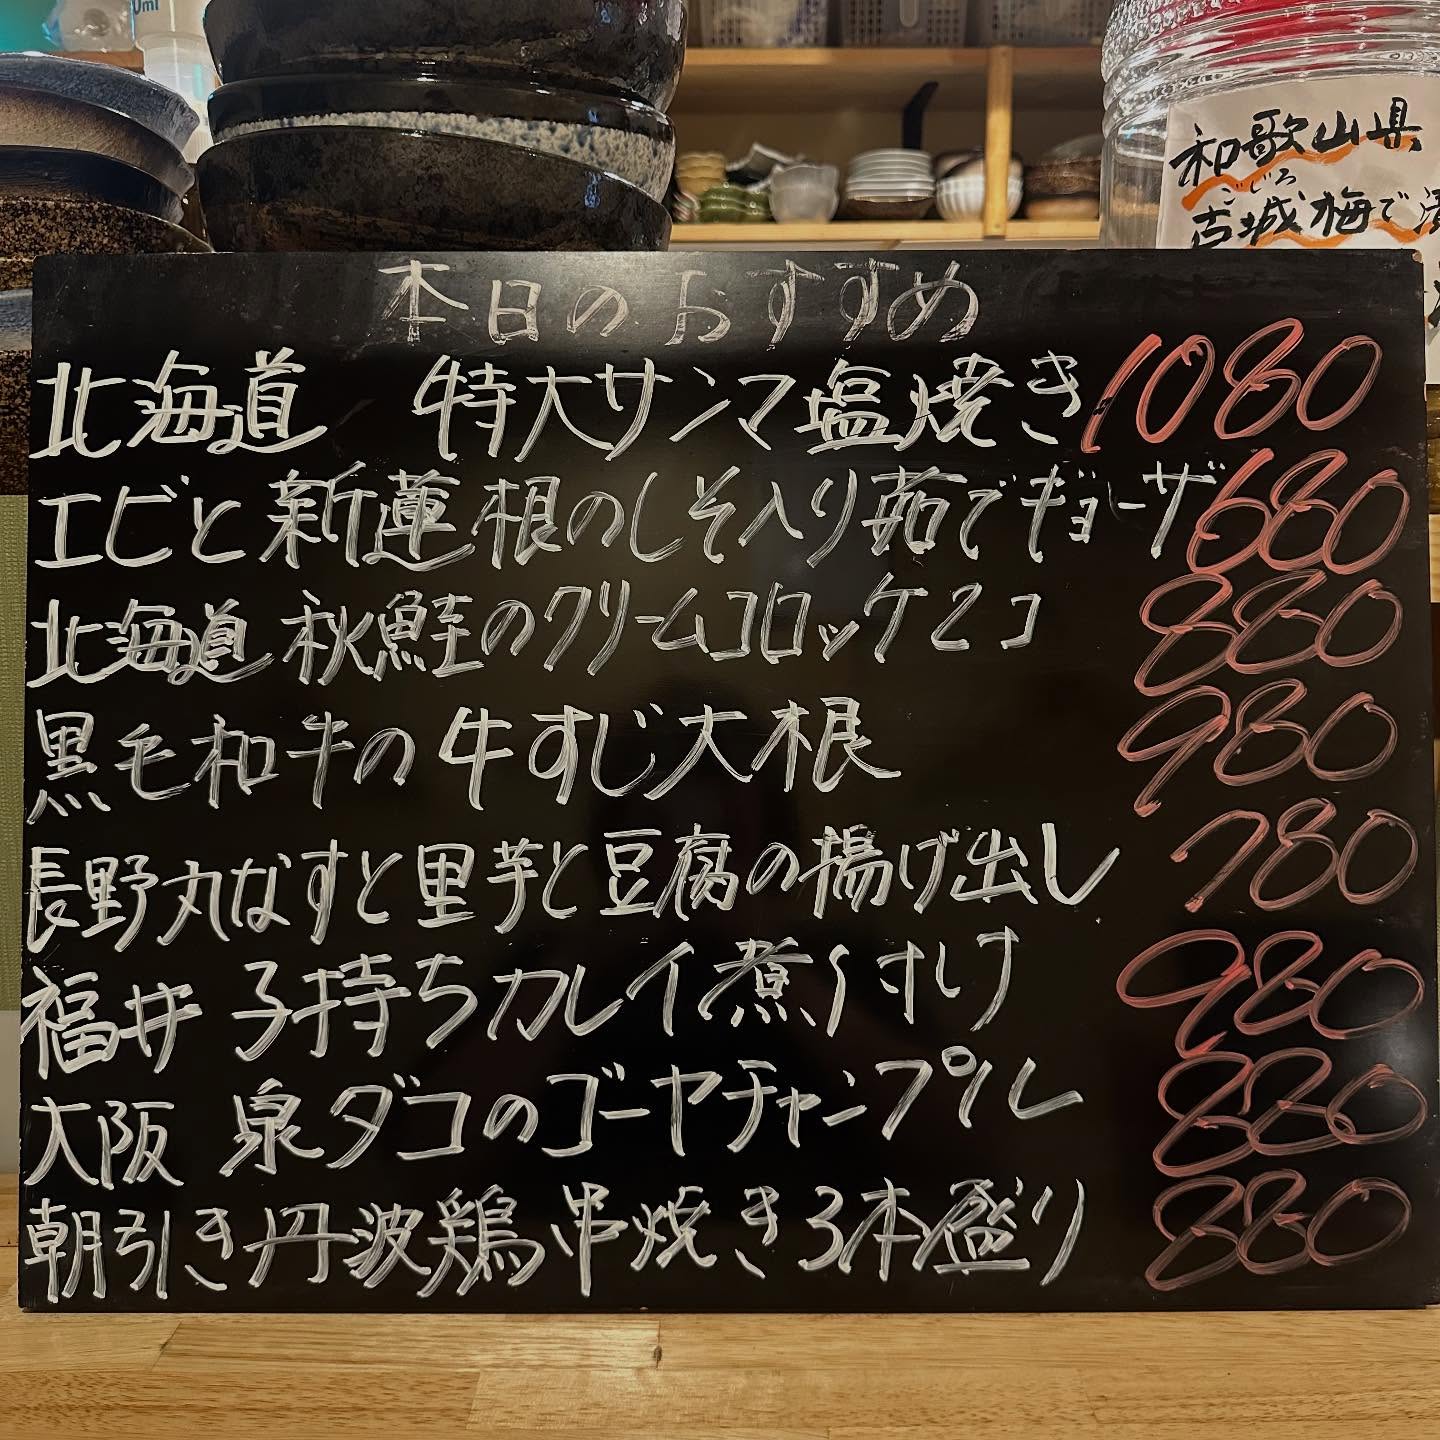 0ml
和歌山県
こじろ
古城梅で漬
本日のおすすめ
北海道 特大サンマ塩焼き 1080
エビと新蓮根のしそ入り茹でギョーザ 680
北海道 秋鮭のクリームコロッケ2コ 880
黒毛和牛の牛すじ大根 980
長野丸なすと里芋と豆腐の揚げ出し 780
福井 子持ちカレイ煮付け 980
大阪 泉ダコのゴーヤチャンプル 880
朝引き丹波鶏串焼き3本盛り 880